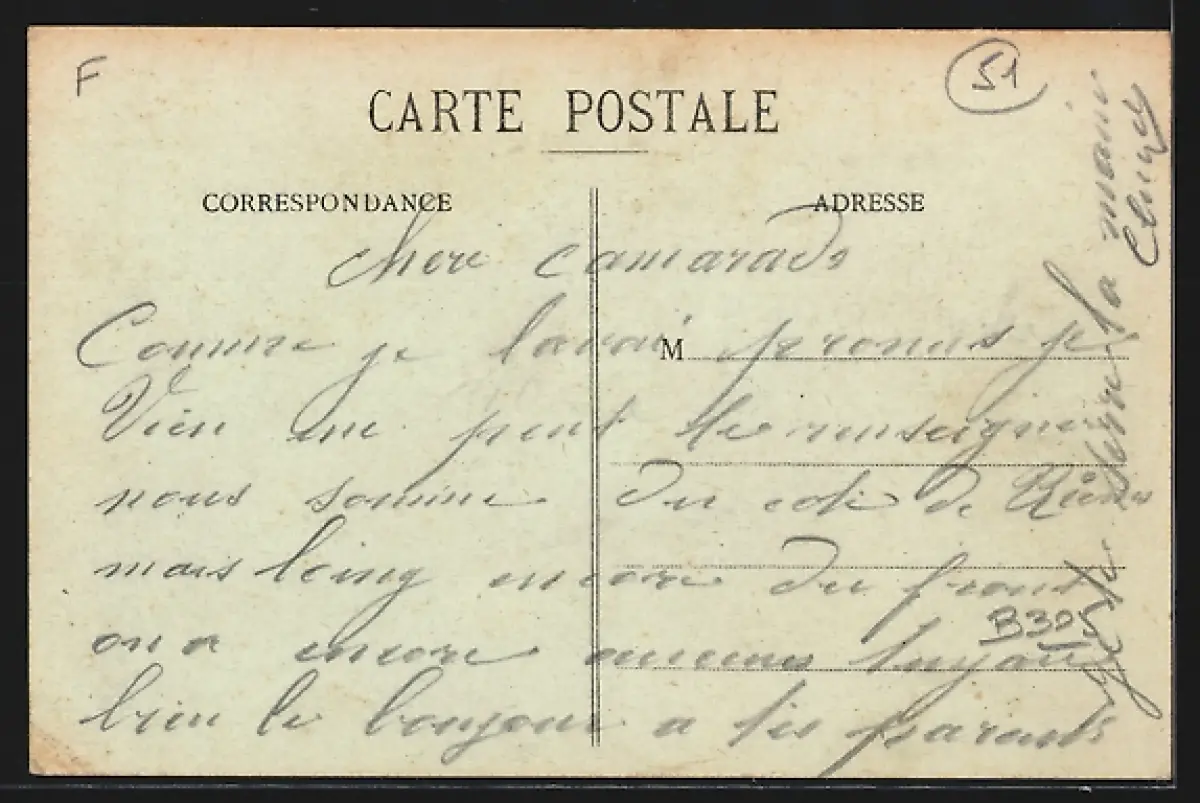 F
51
CARTE POSTALE
CORRESPONDANCE
ADRESSE
M
Chere camarade
Comme je lavai promis je
Vien un peut te renseigner
nous somme du coté de Reims
mais loing encore du front
on a encore aucuns tuyau
bien le bonjour a tes parents
B305
Je te serre la main